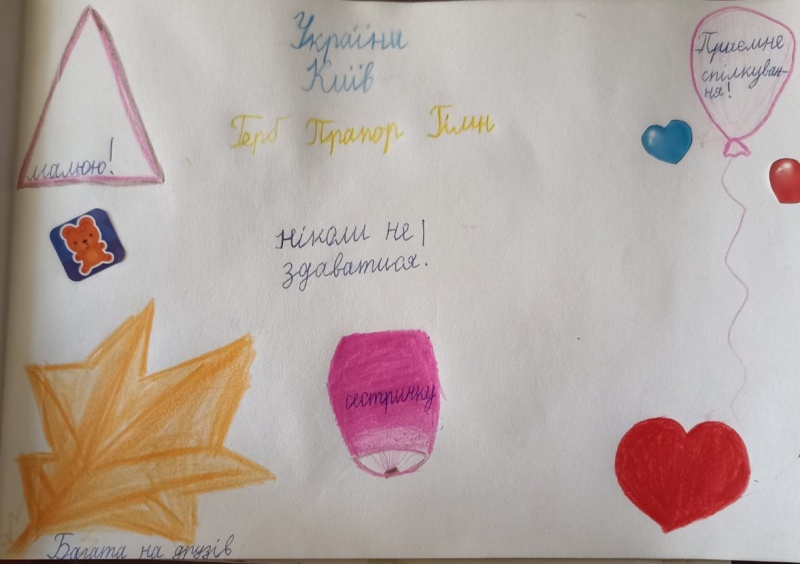 Україна
Київ
Герб Прапор Гімн
Приємне
спілкуван-
ня!
малюю!
ніколи не
здаватися!
сестричку
Багата на друзів